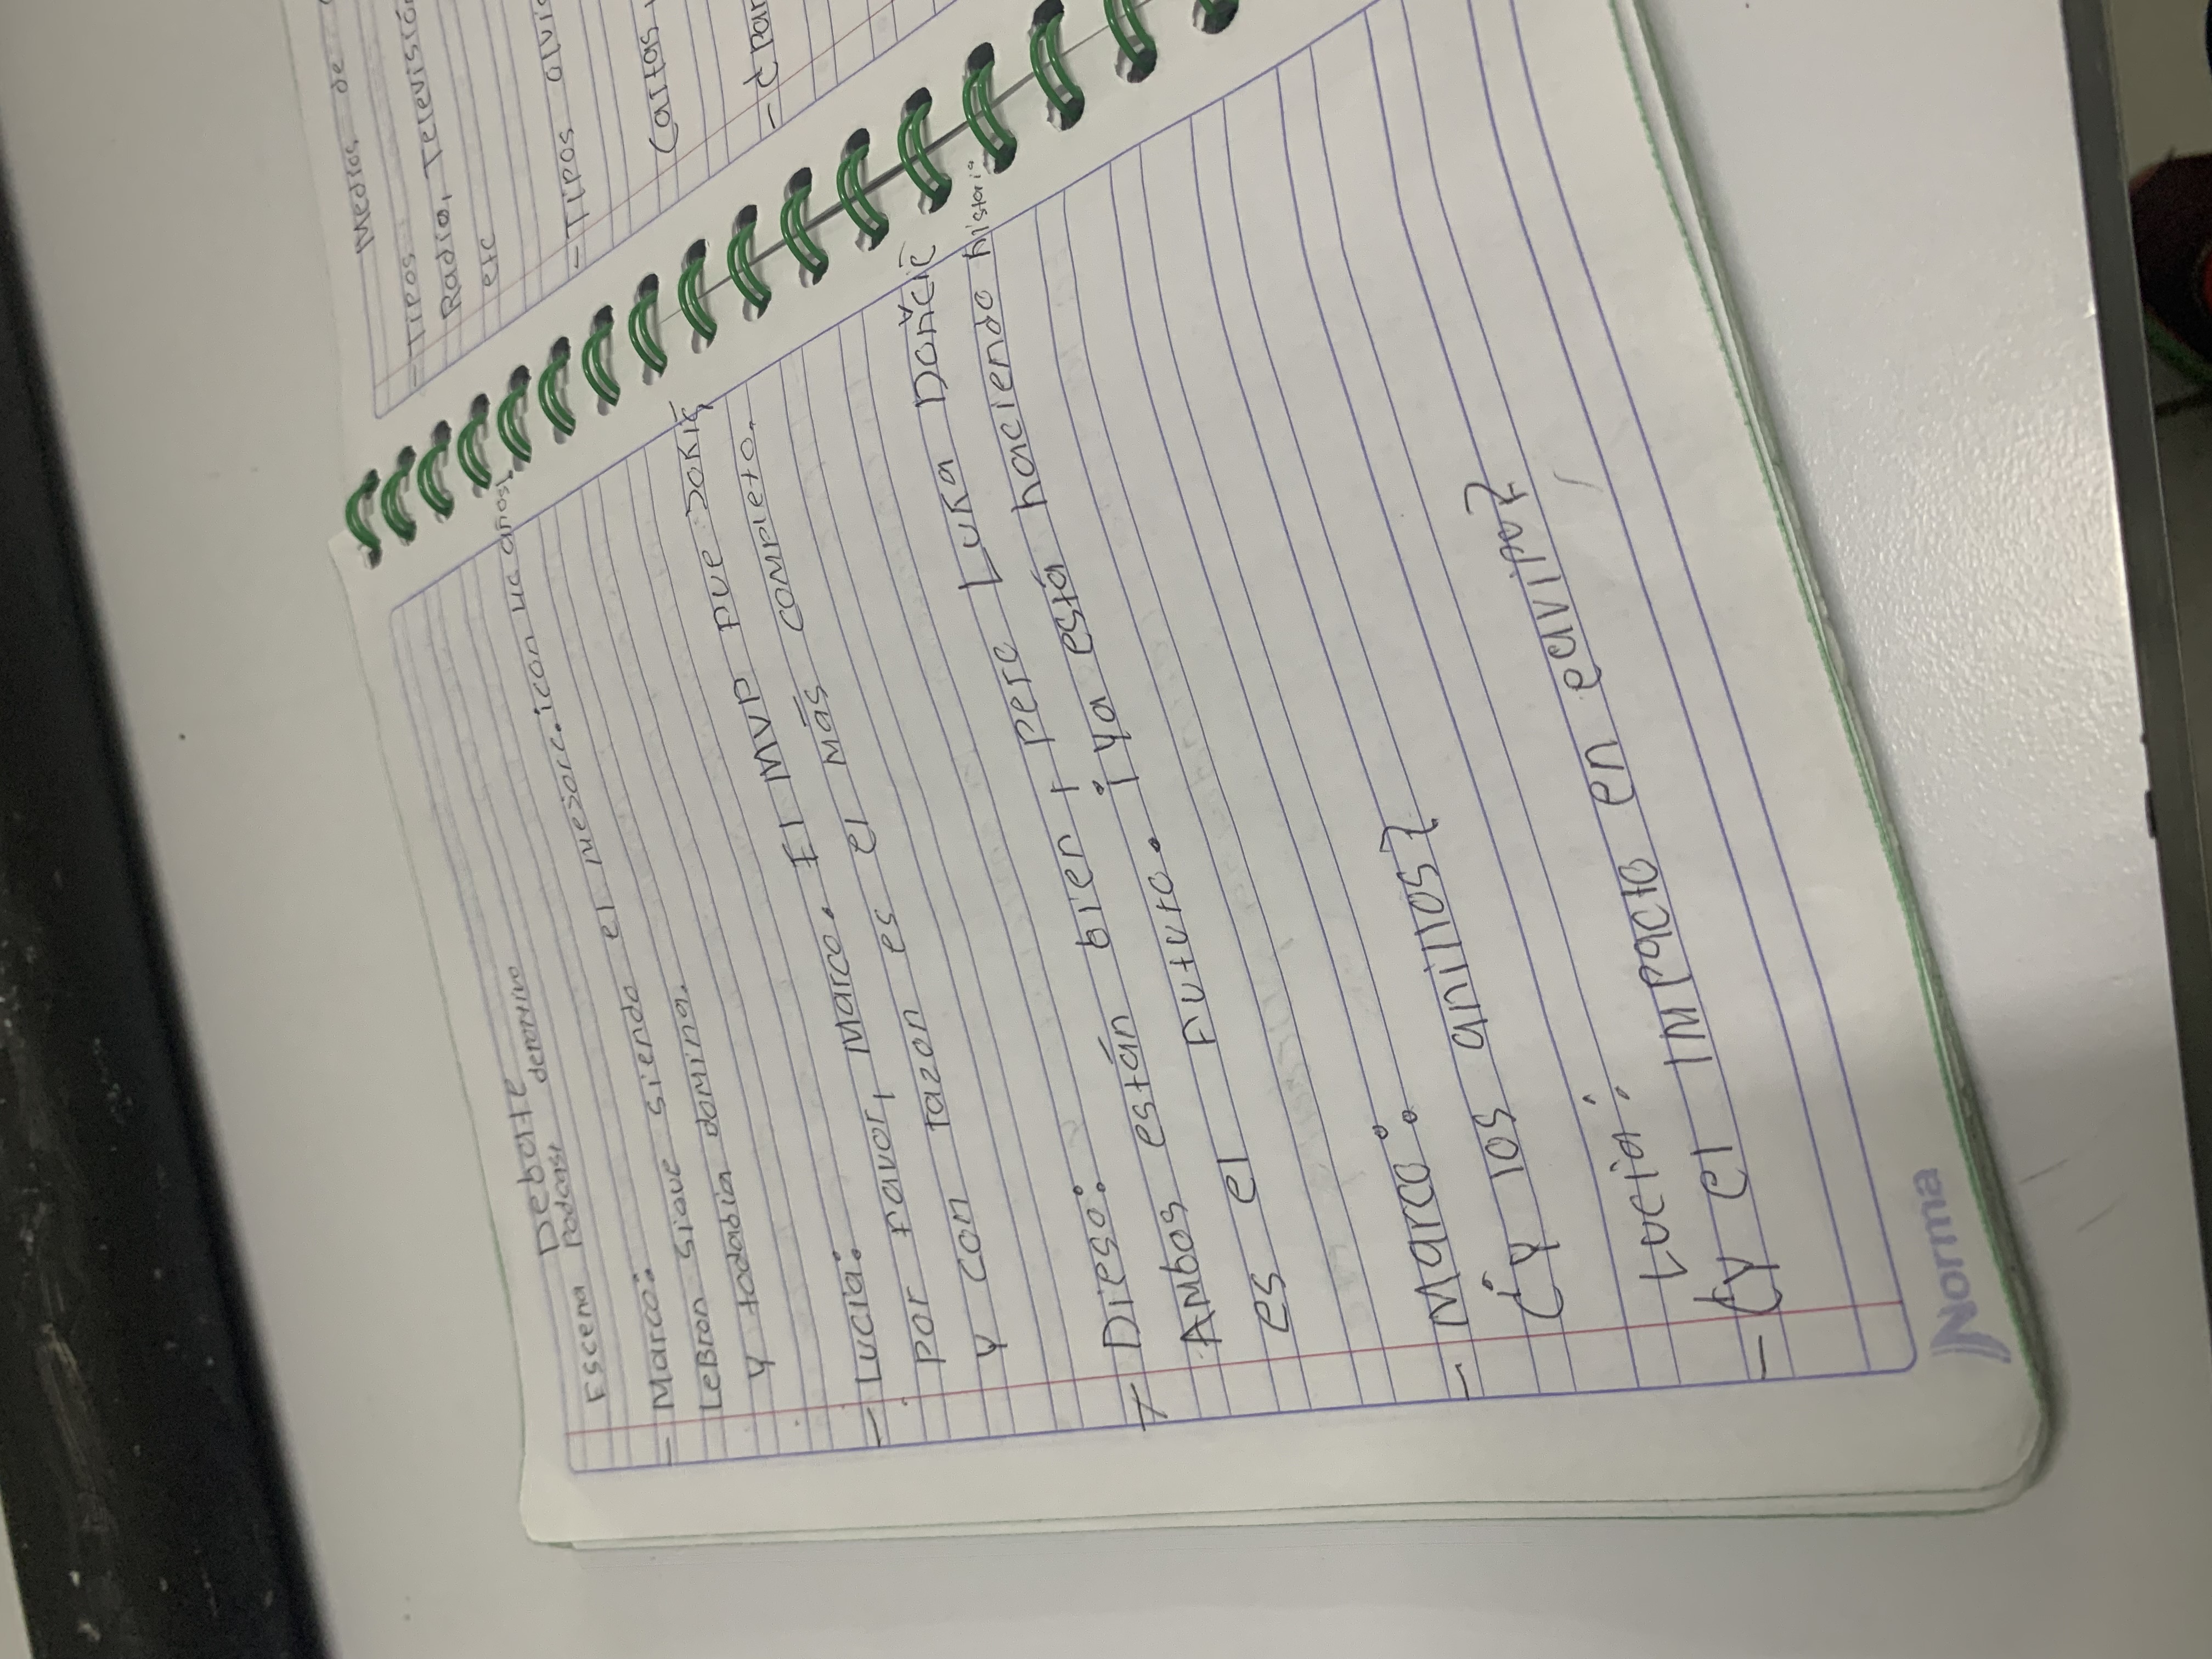 Debate
Escena Podcast deportivo
- Marco:
Lebron sigue siendo el mejor. ¡con 40 años!,
y todabia domina.
- Lucia:
por favor, Marco. El MVP fue Jokić,
y con razon es el más completo.
- Diego:
Ambos están bien, pero Luka Dončić
es el futuro. ¡ya está haciendo historia
- Marco:
¿y los anillos?
Lucia:
- ¿y el impacto en equipo?
Norma
Medios de
- Tipos:
Radio, Televisión
etc
- Tipos
Cartas